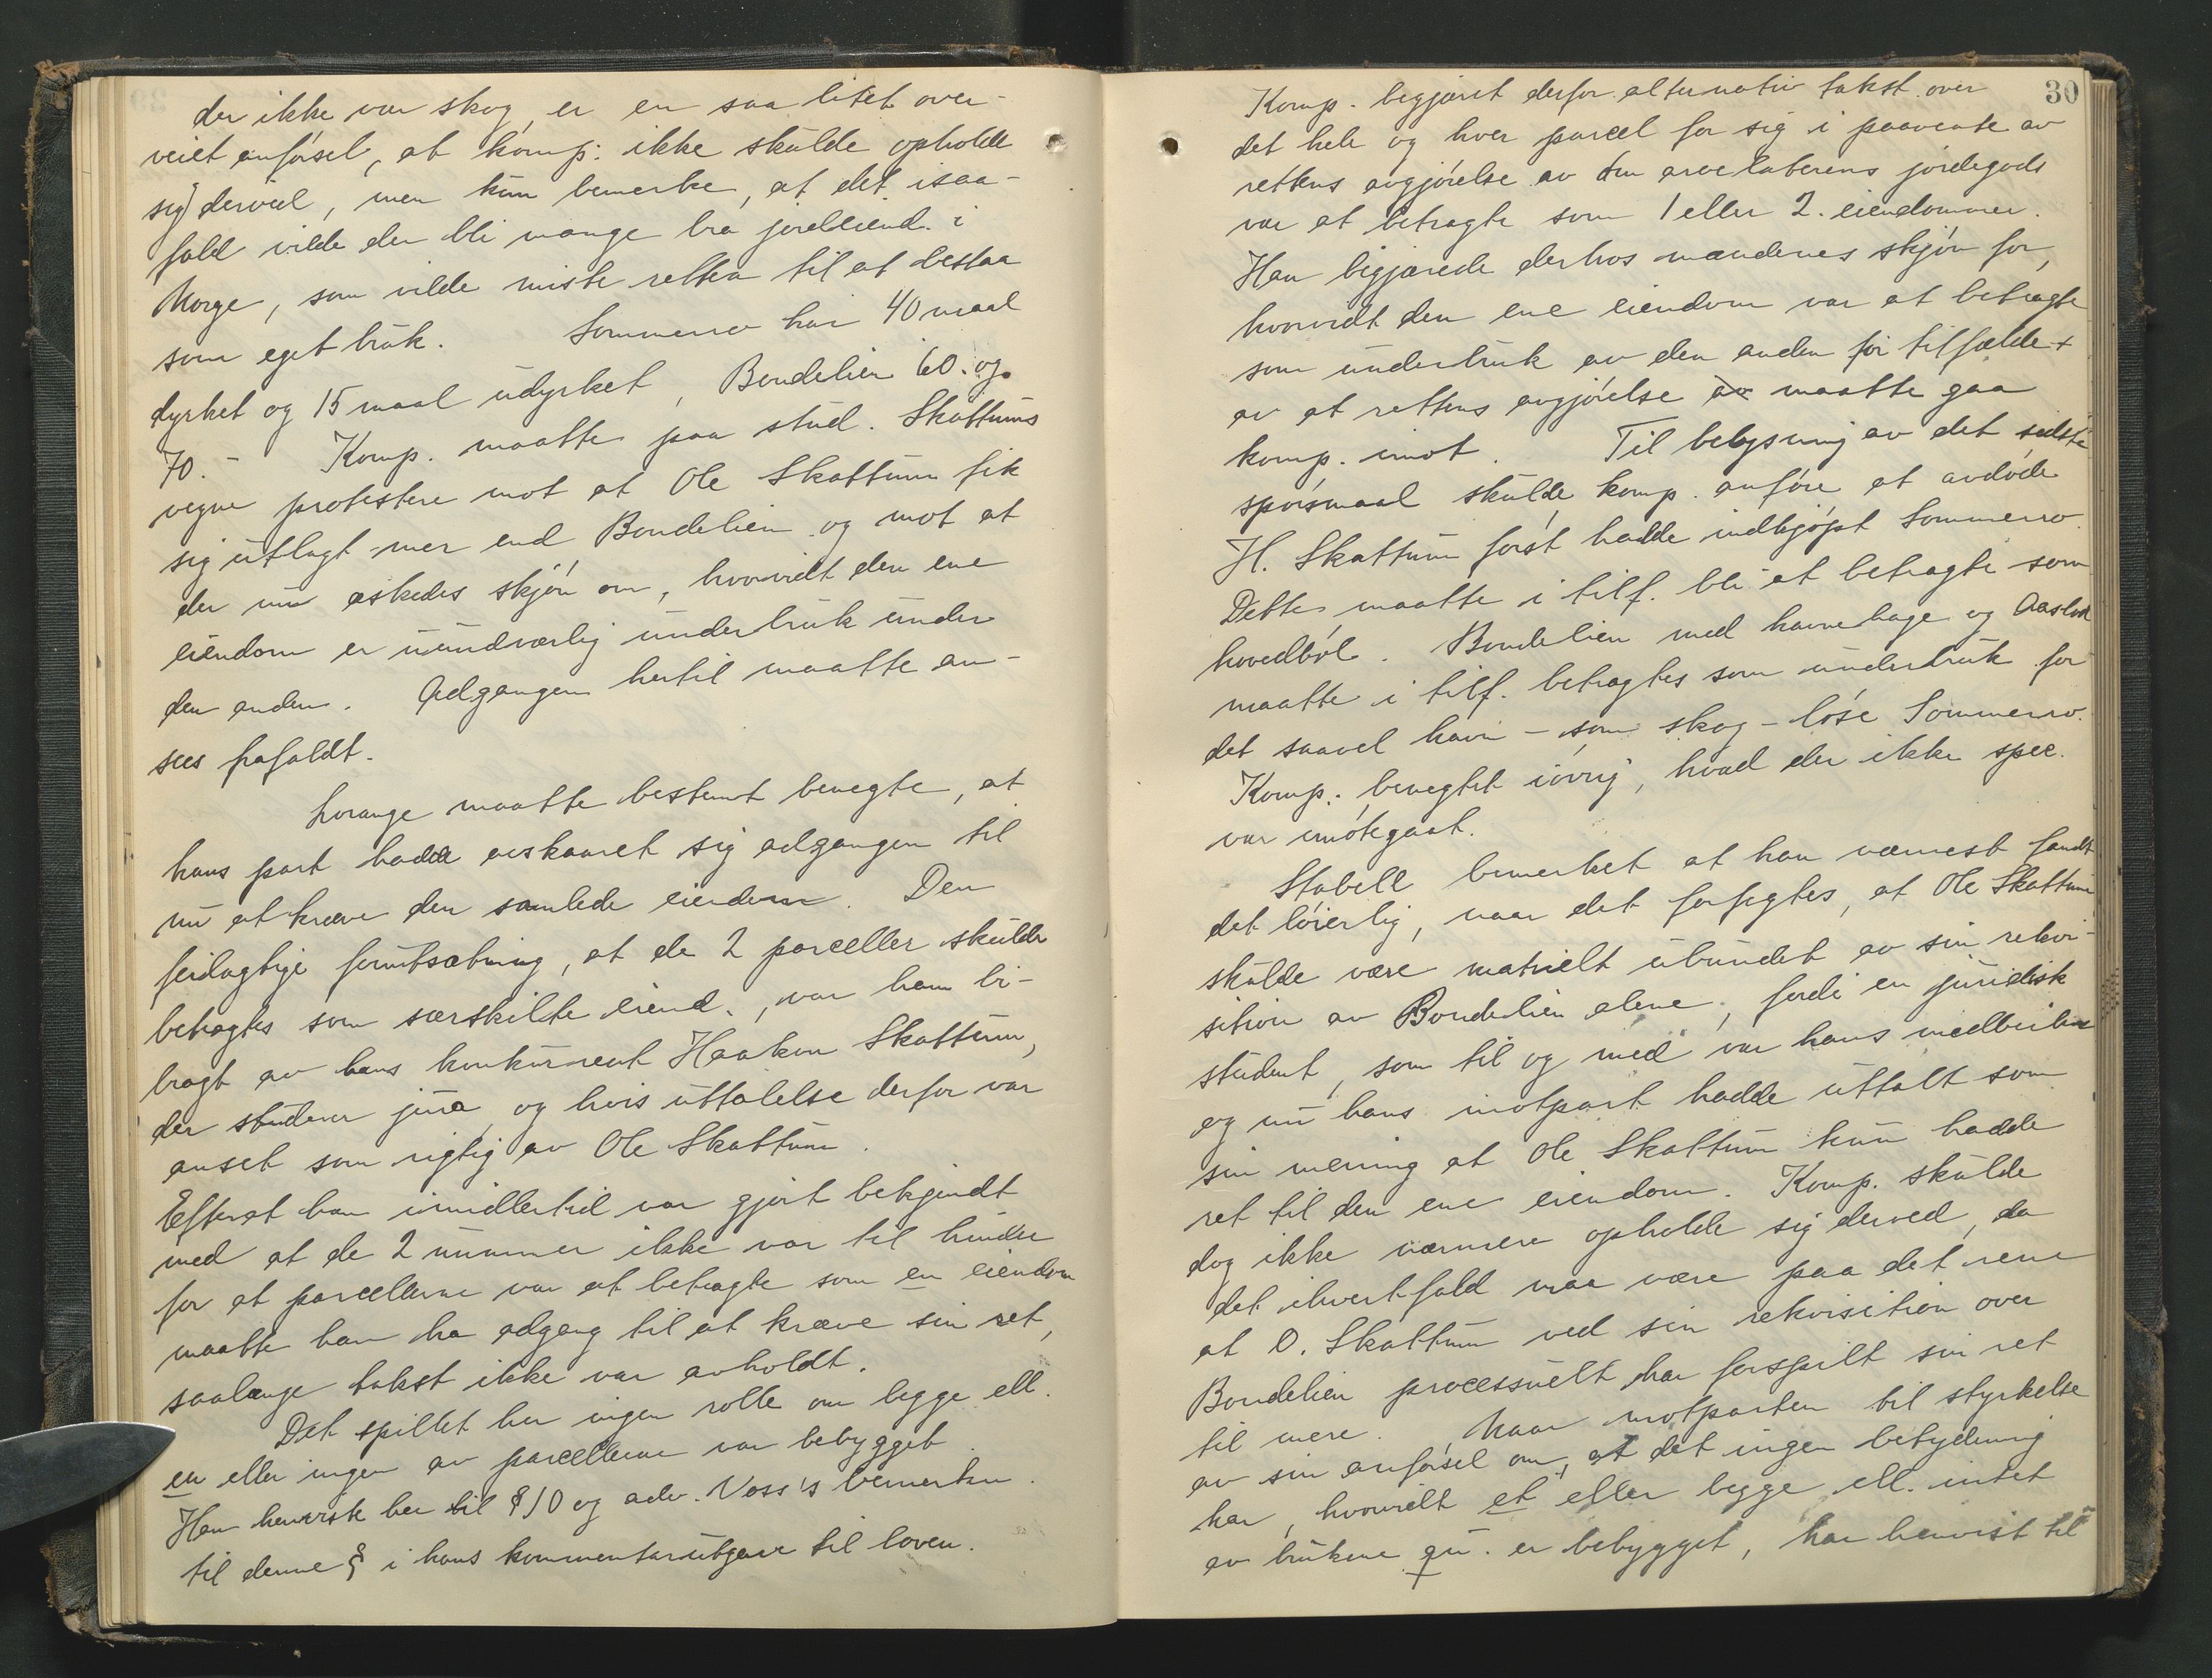 der ikke var skog, er en saa litet over-
veiet anførsel, at komp. ikke skulde opholde
sig derved, men kun bemerke, at det isaa-
fald vilde der bli mange bra jordeiend. i
Norge, som vilde miste retten til at bestaa
som eget bruk. Sommerro har 40 maal
dyrket og 15 maal udyrket, Bondelien 60. og
70. - Komp. maatte paa stud. Skattums
vegne protestere mot at Ole Skattum fik
sig utlagt mer end Bondelien og mot at
der nu æskedes skjøn om, hvorvidt den ene
eiendom er uundværlig underbruk under
den anden. Adgangen hertil maatte an-
sees frafaldt.
Lorange maatte bestemt benegte, at
hans part hadde avskaaret sig adgangen til
nu at kræve den samlede eiendom. Den
feilagtige forutsætning, at de 2 parceller skulde
betragtes som særskilte eiend., var ham bi-
bragt av hans konkurrent Haakon Skattum,
der studerer jura, og hvis uttalelse derfor var
anset som rigtig av Ole Skattum.
Efterat han imidlertid var gjort bekjendt
med at de 2 nummer ikke var til hinder
for at parcellerne var at betragte som en eiendom
maatte han ha adgang til at kræve sin ret,
saalænge takst ikke var avholdt.
Det spillet her ingen rolle om begge ell.
en eller ingen av parcellerne var bebygget.
Han henviste her til § 10 og adv. Voss's bemerkn.
til denne § i hans kommentarutgave til loven.
30
Komp. begjæret derfor alternativ takst over
det hele og hver parcel for sig i paavente av
rettens avgjørelse av om arvelaterens jordegods
var at betragte som 1 eller 2. eiendommer.
Han begjærede derhos mændenes skjøn for,
hvorvidt den ene eiendom var at betragte
som underbruk av den anden for tilfælde
av at rettens avgjørelse maatte gaa
komp. imot. Til belysning av det sidste
spørsmaal skulde komp. anføre at avdøde
H. Skattum først hadde indkjøpt Sommerro.
Dette maatte i tilf. bli at betragte som
hovedbøl. Bondelien med havnehage og
maatte i tilf. betragtes som underbruk for
det saavel havn- som skog-løse Sommerro.
Komp. benegtet iøvrig, hvad der ikke spec.
var imøtegaat.
Stabell bemerket at han nærmest fandt
det løierlig, naar det forfegtes, at Ole Skattum
skulde være materielt ubundet av sin rekvi-
sition av Bondelien alene, fordi en juridisk
student, som til og med var hans medbeiler
og nu hans motpart hadde uttalt som
sin mening at Ole Skattum kun hadde
ret til den ene eiendom. Komp. skulde
dog ikke nærmere opholde sig derved, da
det ihvertfald maa være paa det rene
at O. Skattum ved sin rekvisition over
Bondelien processuelt har forspilt sin ret
til mere. Naar motparten til styrkelse
av sin anførsel om, at det ingen betydning
har, hvorvidt et eller begge ell. intet
av brukene qu. er bebygget, har henvist til